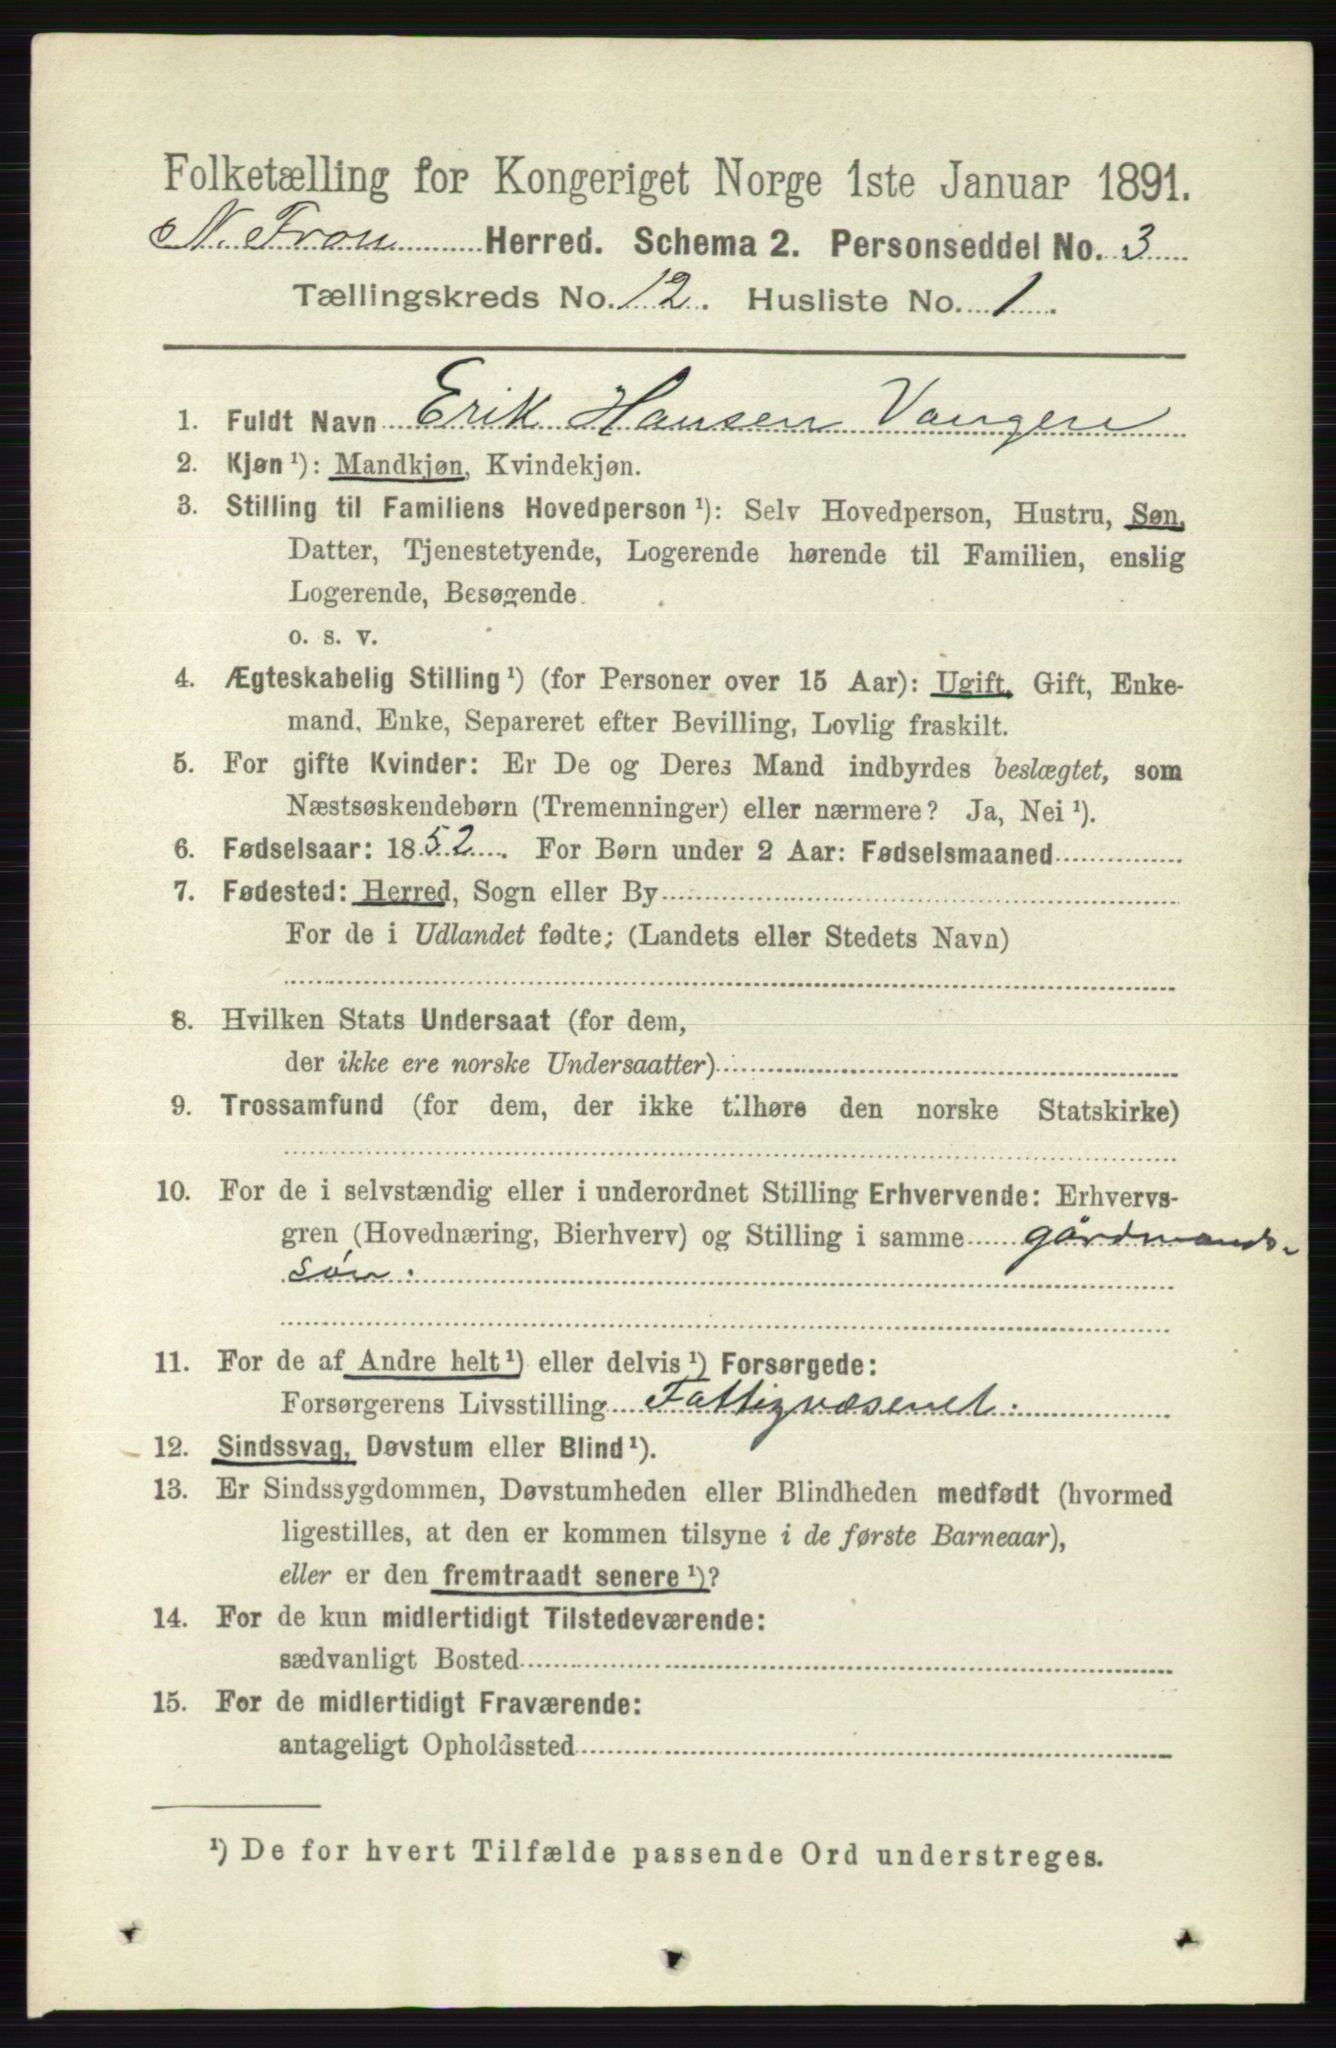 Folketælling for Kongeriget Norge 1ste Januar 1891.
N. Fron Herred. Schema 2. Personseddel No. 3
Tællingskreds No. 12. Husliste No. 1.
1. Fuldt Navn Erik Hansen Vangen
2. Kjøn ¹): Mandkjøn, Kvindekjøn.
3. Stilling til Familiens Hovedperson ¹): Selv Hovedperson, Hustru, Søn,
Datter, Tjenestetyende, Logerende hørende til Familien, enslig
Logerende, Besøgende
o. s. v.
4. Ægteskabelig Stilling ¹) (for Personer over 15 Aar): Ugift, Gift, Enke-
mand, Enke, Separeret efter Bevilling, Lovlig fraskilt.
5. For gifte Kvinder: Er De og Deres Mand indbyrdes beslægtet, som
Næstsøskendebørn (Tremenninger) eller nærmere? Ja, Nei ¹).
6. Fødselsaar: 1852. For Børn under 2 Aar: Fødselsmaaned
7. Fødested: Herred, Sogn eller By
For de i Udlandet fødte; (Landets eller Stedets Navn)
8. Hvilken Stats Undersaat (for dem,
der ikke ere norske Undersaatter)
9. Trossamfund (for dem, der ikke tilhøre den norske Statskirke)
10. For de i selvstændig eller i underordnet Stilling Erhvervende: Erhvervs-
gren (Hovednæring, Bierhverv) og Stilling i samme gårdmands-
søn.
11. For de af Andre helt ¹) eller delvis ¹) Forsørgede:
Forsørgerens Livsstilling Fattigvæsenet.
12. Sindssvag, Døvstum eller Blind ¹).
13. Er Sindssygdommen, Døvstumheden eller Blindheden medfødt (hvormed
ligestilles, at den er kommen tilsyne i de første Barneaar),
eller er den fremtraadt senere ¹)?
14. For de kun midlertidigt Tilstedeværende:
sædvanligt Bosted
15. For de midlertidigt Fraværende:
antageligt Opholdssted
¹) De for hvert Tilfælde passende Ord understreges.